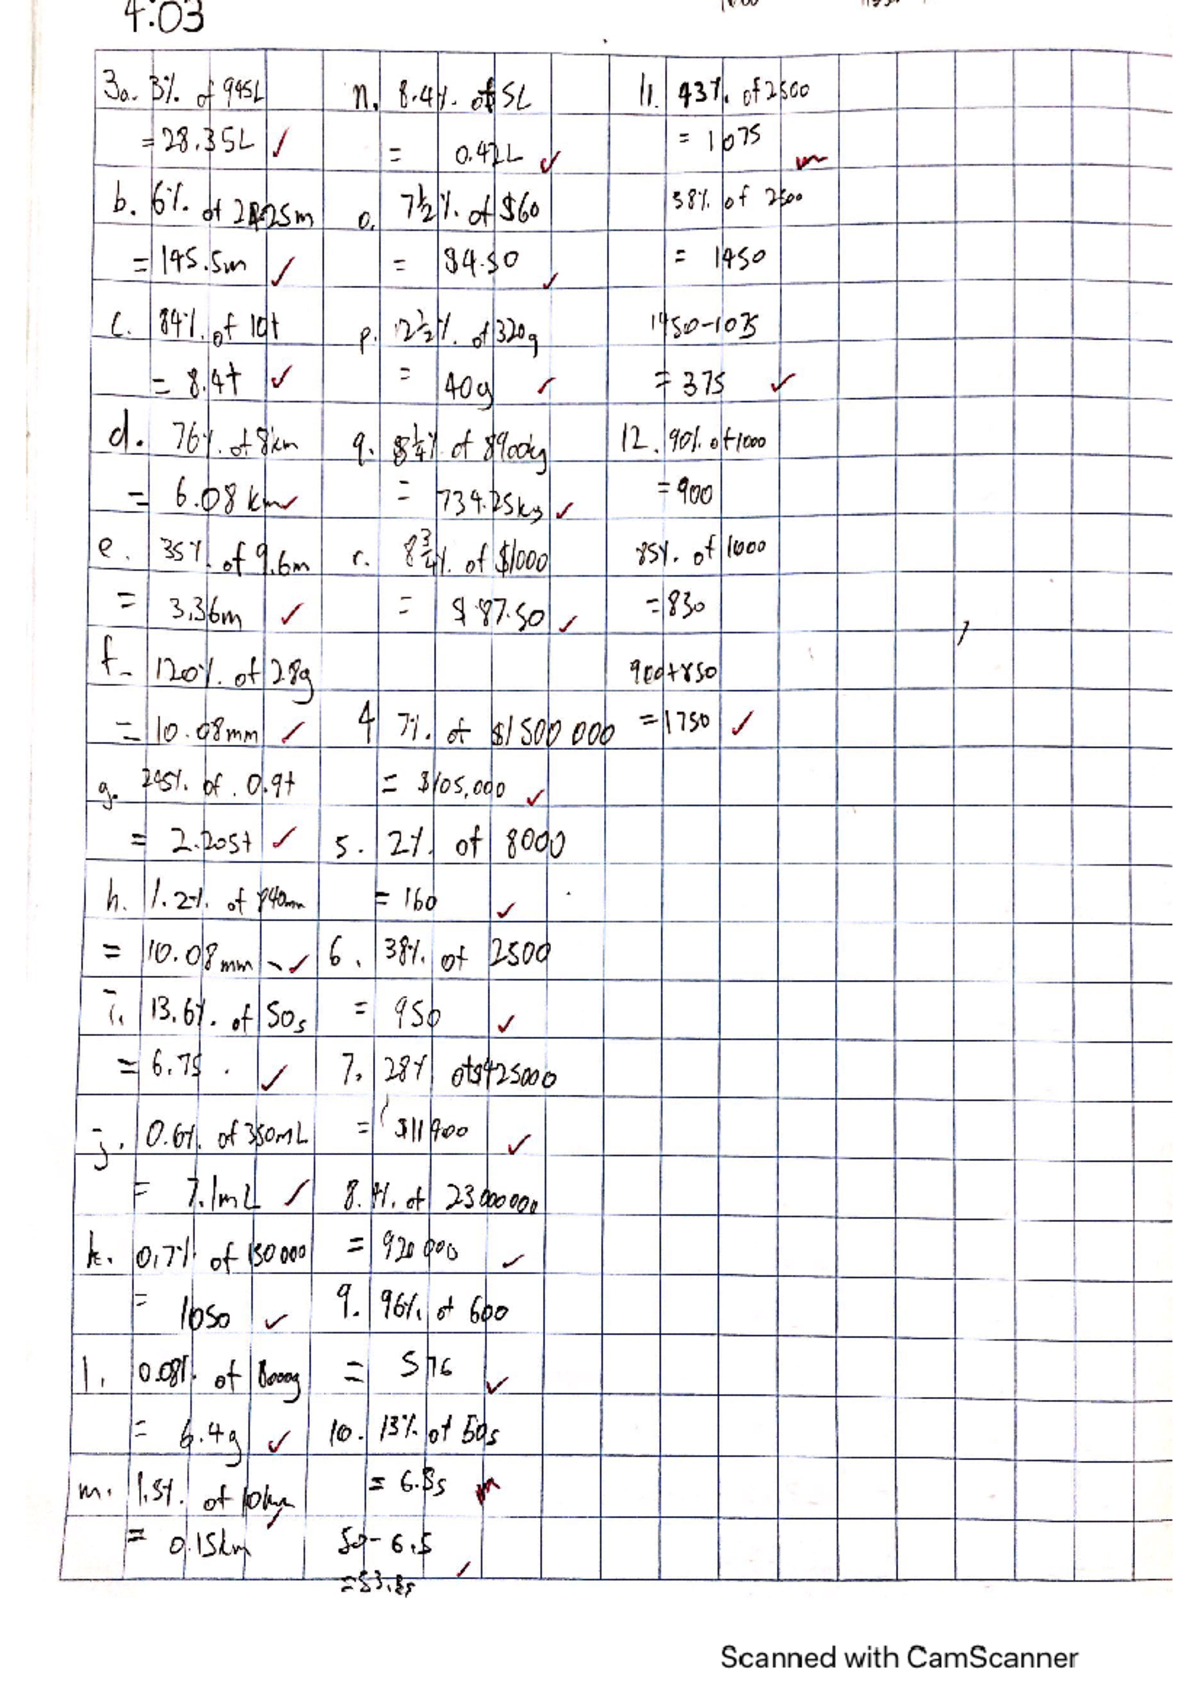 4:03
3a. 3% of 945L
= 28.35L
b. 6% of 2425m
= 145.5m
c. 84% of 10t
= 8.4t
d. 76% of 8km
= 6.08km
e. 35% of 9.6m
= 3.36m
f. 120% of 28g
= 10.08mm
g. 245% of 0.9t
= 2.205t
h. 1.2% of 840mm
= 10.08mm
i. 13.6% of 50s
= 6.75
j. 0.6% of 350mL
= 7.1mL
k. 0.7% of 150 000
= 1050
l. 0.08% of 8000g
= 6.4g
m. 1.5% of 10km
= 0.15km
n. 8.4% of 5L
= 0.42L
o. 7½% of $60
= $4.50
p. 12½% of 320g
= 40g
q. 8¼% of 8900kg
= 734.25kg
r. 8¾% of $1000
= $87.50
4 7% of $1500 000
= $105,000
5. 2% of 8000
= 160
6. 38% of 2500
= 950
7. 28% of $425000
= $11900
8. 4% of 23000000
= 920 000
9. 96% of 600
= 576
10. 13% of 50s
= 6.5s
50 - 6.5
11. 43% of 2500
= 1075
58% of 2500
= 1450
1450-1075
= 375
12. 90% of 1000
= 900
85% of 1000
= 850
900+850
= 1750
Scanned with CamScanner